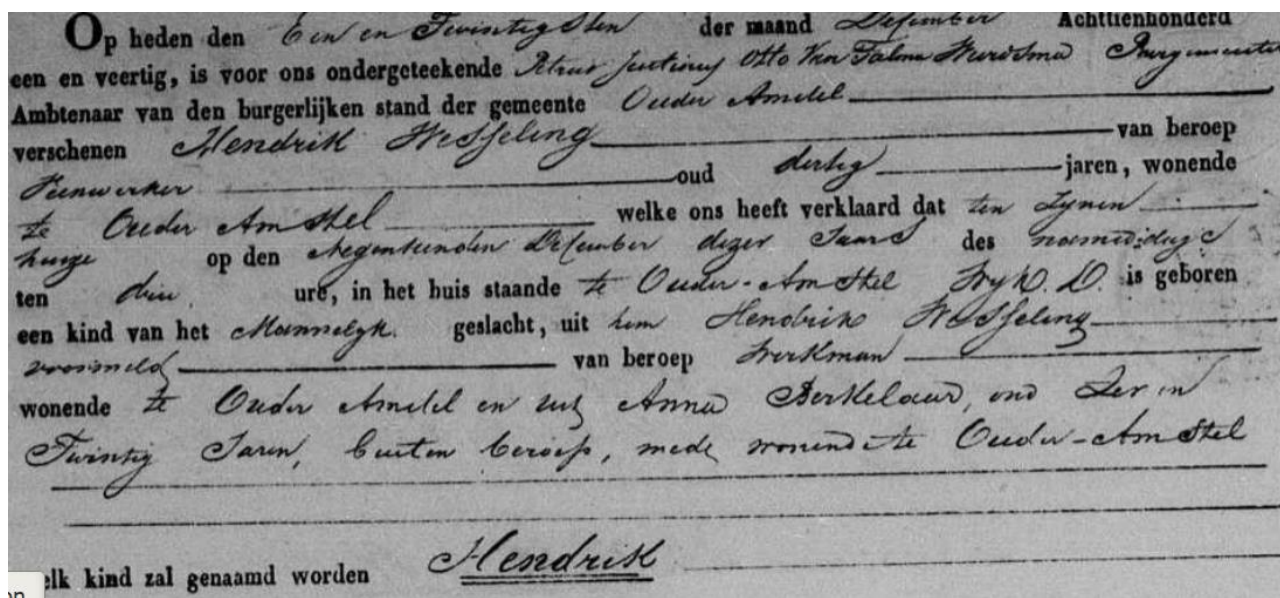 Op heden den Een en Twintigsten der maand December Achttienhonderd
een en veertig, is voor ons ondergeteekende Petrus Otto Van Burgemeester
Ambtenaar van den burgerlijken stand der gemeente Ouder Amstel
verschenen Hendrik Wesseling van beroep
Veenwerker oud dertig jaren, wonende
te Ouder Amstel welke ons heeft verklaard dat ten zynen
huize op den Negentienden December dezes Jaars des
ten drie ure, in het huis staande te Ouder-Amstel Wyk D. is geboren
een kind van het Mannelyk geslacht, uit hem Hendrik Wesseling
voormeld van beroep Werkman
wonende te Ouder Amstel en uit Anna Berkelaar, oud en
Twintig Jaren, buiten beroep, mede wonende te Ouder-Amstel
elk kind zal genaamd worden Hendrik